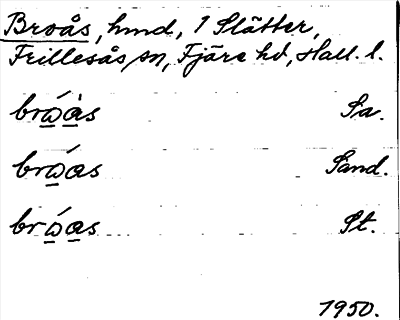 Broås, hmd, 1 Slätter,
Frillesås sn, Fjäre hd, Hall. l.
brώ̲à̲s Sa.
brώ̲a̲s Sand.
brώ̲a̲s St.
1950.